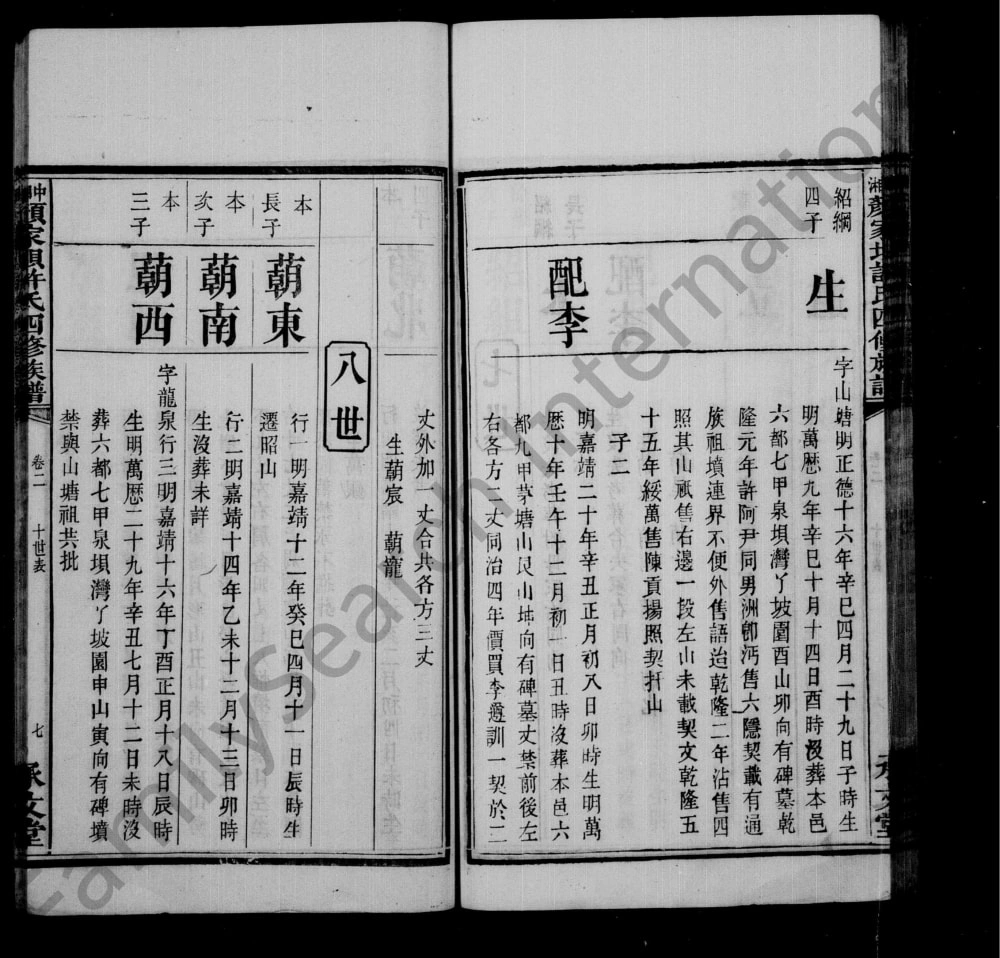 紹綱
四子
生
字山塘明正德十六年辛巳四月二十九日子時生
明萬歷九年辛巳十月十四日酉時歿葬本邑
六都七甲泉垻灣丫坡園酉山卯向有碑墓乾
隆元年許阿尹同男洲卿沔售六隱契載有通
族祖墳連界不便外售語迨乾隆二年沾售四
照其山祇售右邊一段左山未載契文乾隆五
十五年綏萬售陳貢揚照契扦山
子二
配李
明嘉靖二十年辛丑正月初八日卯時生明萬
歷十年壬午十二月初一日丑時沒葬本邑六
都九甲茅塘山艮山坤向有碑墓丈禁前後左
右各方二丈同治四年價買李遵訓一契於二
丈外加一丈合共各方三丈
生蓢宸 蓢龍
八世
本
長子
蓢東
行一明嘉靖十二年癸巳四月十一日辰時生
遷昭山
本
次子
蓢南
行二明嘉靖十四年乙未十二月十三日卯時
生沒葬未詳
本
三子
蓢西
字龍泉行三明嘉靖十六年丁酉正月十八日辰時
生明萬歷二十九年辛丑七月十二日未時沒
葬六都七甲泉垻灣丫坡園申山寅向有碑墳
禁與山塘祖共批
卷二
十世表
七
承文堂
FamilySearch International